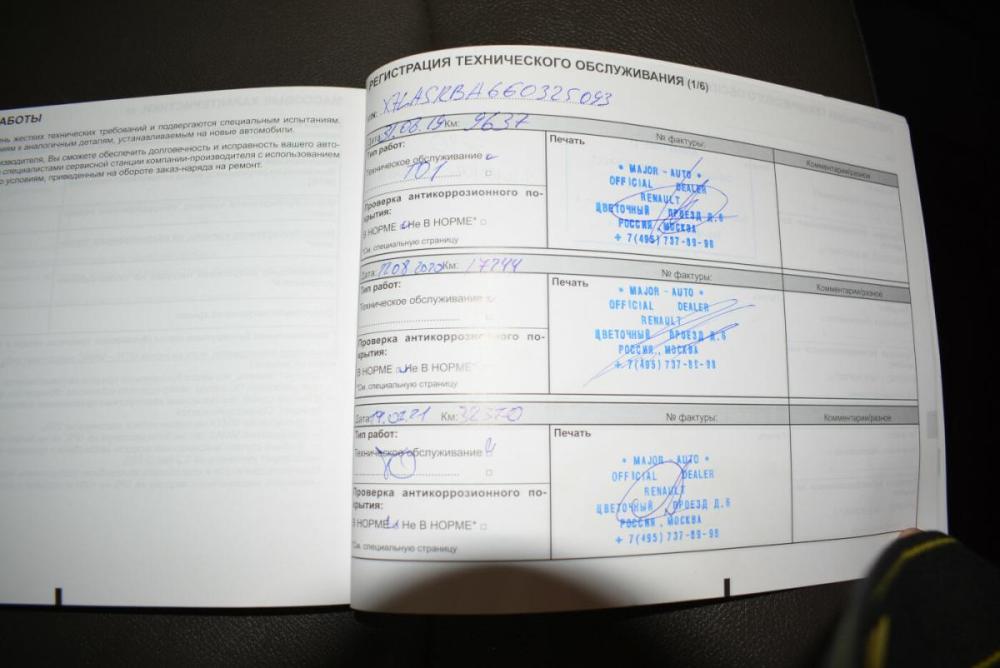 АБОТЫ
ень жестких технических требований и подвергаются специальным испытаниям.
ниям к аналогичным деталям, устанавливаемым на новые автомобили.
изводителя, Вы сможете обеспечить долговечность и исправность вашего авто-
специалистами сервисной станции компании-производителя с использованием
о условиям, приведенным на обороте заказ-наряда на ремонт.
РЕГИСТРАЦИЯ ТЕХНИЧЕСКОГО ОБСЛУЖИВАНИЯ (1/6)
VIN: X7LASRBA660325093
Дата: 31.08.19 Км: 9637 № фактуры:
Тип работ: Печать Комментарии/разное
Техническое обслуживание
ТО1
Проверка антикоррозионного по-
крытия:
В НОРМЕ Не В НОРМЕ*
*См. специальную страницу
* MAJOR - AUTO *
OFFICIAL DEALER
RENAULT
ЦВЕТОЧНЫЙ ПРОЕЗД Д.6
РОССИЯ, МОСКВА
+ 7(495) 737-89-98
Дата: 08 2020 Км: 17244 № фактуры:
Тип работ: Печать Комментарии/разное
Техническое обслуживание
Проверка антикоррозионного по-
крытия:
В НОРМЕ Не В НОРМЕ*
*См. специальную страницу
* MAJOR - AUTO *
OFFICIAL DEALER
RENAULT
ЦВЕТОЧНЫЙ ПРОЕЗД Д.6
РОССИЯ, МОСКВА
+ 7(495) 737-89-98
Дата: Км: 32370 № фактуры:
Тип работ: Печать Комментарии/разное
Техническое обслуживание
Проверка антикоррозионного по-
крытия:
В НОРМЕ Не В НОРМЕ*
*См. специальную страницу
* MAJOR - AUTO *
OFFICIAL DEALER
RENAULT
ЦВЕТОЧНЫЙ ПРОЕЗД Д.6
РОССИЯ, МОСКВА
+ 7(495) 737-89-98